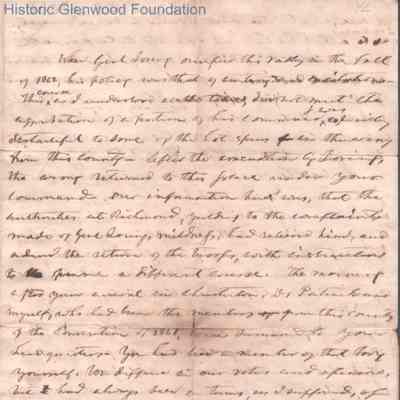 Historic Glenwood Foundation
When Genl Loring occupied this valley in the fall
of 1862, his policy was that of
This, as I understood at the time, did not meet the
approbation of a portion of his command,
distasteful to some of the hot spurs in the army
from this county. After the evacuation by Loring,
the army returned to this place under your
command. Our information here was, that the
authorities at Richmond, yielding to the complaints
made of Genl Loring's mildness, had relieved him, and
ordered the return of the troops, with instructions
to pursue a different course. The morning
after your arrival in Charleston, Dr. Patrick and
myself, who had been the members from this county
of the Convention of 1861, were summoned to your
headquarters. You had been a member of that body
yourself. We differed in our votes and opinions,
but had always been on terms, as I supposed, of